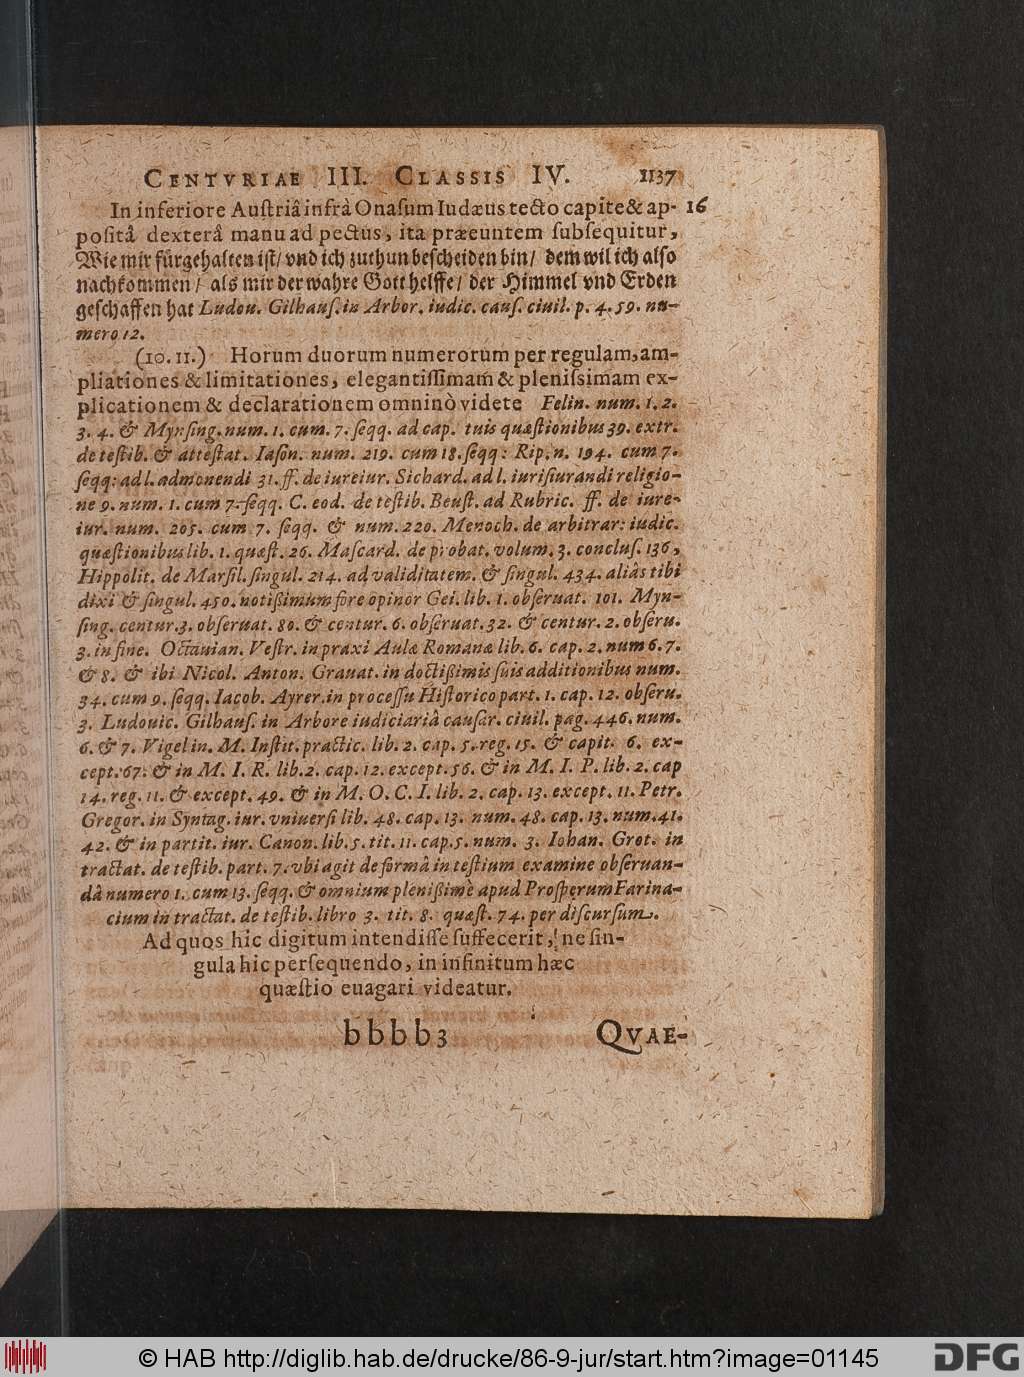 CENTVRIAE III. CLASSIS IV. 1137
In inferiore Auſtriâ infrà Onaſum Iudæus tecto capite & ap- 16
poſitâ dexterâ manu ad pectus, ita præeuntem ſubſequitur,
Wie mir fürgehalten iſt/ vnd ich zuthun beſcheiden bin/ dem wil ich alſo
nachkommen/ als mir der wahre Gott helffe/ der Himmel vnd Erden
geſchaffen hat Ludou. Gilhauſ. in Arbor. iudic. cauſ. ciuil. p. 4. 59. nu-
mero 12.
(10. 11.) Horum duorum numerorum per regulam, am-
pliationes & limitationes, elegantiſſimam & pleniſsimam ex-
plicationem & declarationem omninò videte Felin. num. 1. 2.
3. 4. & Mynſing. num. 1. cum. 7. ſeqq. ad cap. tuis quæſtionibus 39. extr.
de teſtib. & atteſtat. Iaſon. num. 219. cum 18. ſeqq: Rip. n. 194. cum 7.
ſeqq: ad l. admonendi 31. ff. de iureiur. Sichard. ad l. iuriſiurandi religio-
ne 9. num. 1. cum 7. ſeqq. C. eod. de teſtib. Beuſt. ad Rubric. ff. de iure-
iur. num. 205. cum 7. ſeqq. & num. 220. Menoch. de arbitrar: iudic.
quæſtionibus lib. 1. quæſt. 26. Maſcard. de probat. volum. 3. concluſ. 136,
Hippolit. de Marſil. ſingul. 214. ad validitatem. & ſingul. 434. aliàs tibi
dixi & ſingul. 450. notißimum fore opinor Gei. lib. 1. obſeruat. 101. Myn-
ſing. centur. 3. obſeruat. 80. & centur. 6. obſeruat. 32. & centur. 2. obſeru.
3. in fine. Octauian. Veſtr. in praxi Aulæ Romanæ lib. 6. cap. 2. num 6. 7.
& 8. & ibi Nicol. Anton. Grauat. in doctißimis ſuis additionibus num.
34. cum 9. ſeqq. Iacob. Ayrer. in proceſſu Hiſtorico part. 1. cap. 12. obſeru.
3. Ludouic. Gilhauſ. in Arbore iudiciariâ cauſar. ciuil. pag. 446. num.
6. & 7. Vigel in. M. Inſtit. practic. lib. 2. cap. 5. reg. 15. & capit. 6. ex-
cept. 67. & in M. I. R. lib. 2. cap. 12. except. 56. & in M. I. P. lib. 2. cap
14. reg. 11. & except. 49. & in M. O. C. I. lib. 2. cap. 13. except. 11. Petr.
Gregor. in Syntag. iur. vniuerſi lib. 48. cap. 13. num. 48. cap. 13. num. 41.
42. & in partit. iur. Canon. lib. 5. tit. 11. cap. 5. num. 3. Iohan. Grot. in
tractat. de teſtib. part. 7. vbi agit de formâ in teſtium examine obſeruan-
dâ numero 1. cum 13. ſeqq. & omnium plenißimè apud Proſperum Farina-
cium in tractat. de teſtib. libro 3. tit. 8. quæſt. 74. per diſcurſum.
Ad quos hic digitum intendiſſe ſuffecerit, ne ſin-
gula hic perſequendo, in infinitum hæc
quæſtio euagari videatur.
bbbb3 QVAE-
© HAB http://diglib.hab.de/drucke/86-9-jur/start.htm?image=01145
DFG